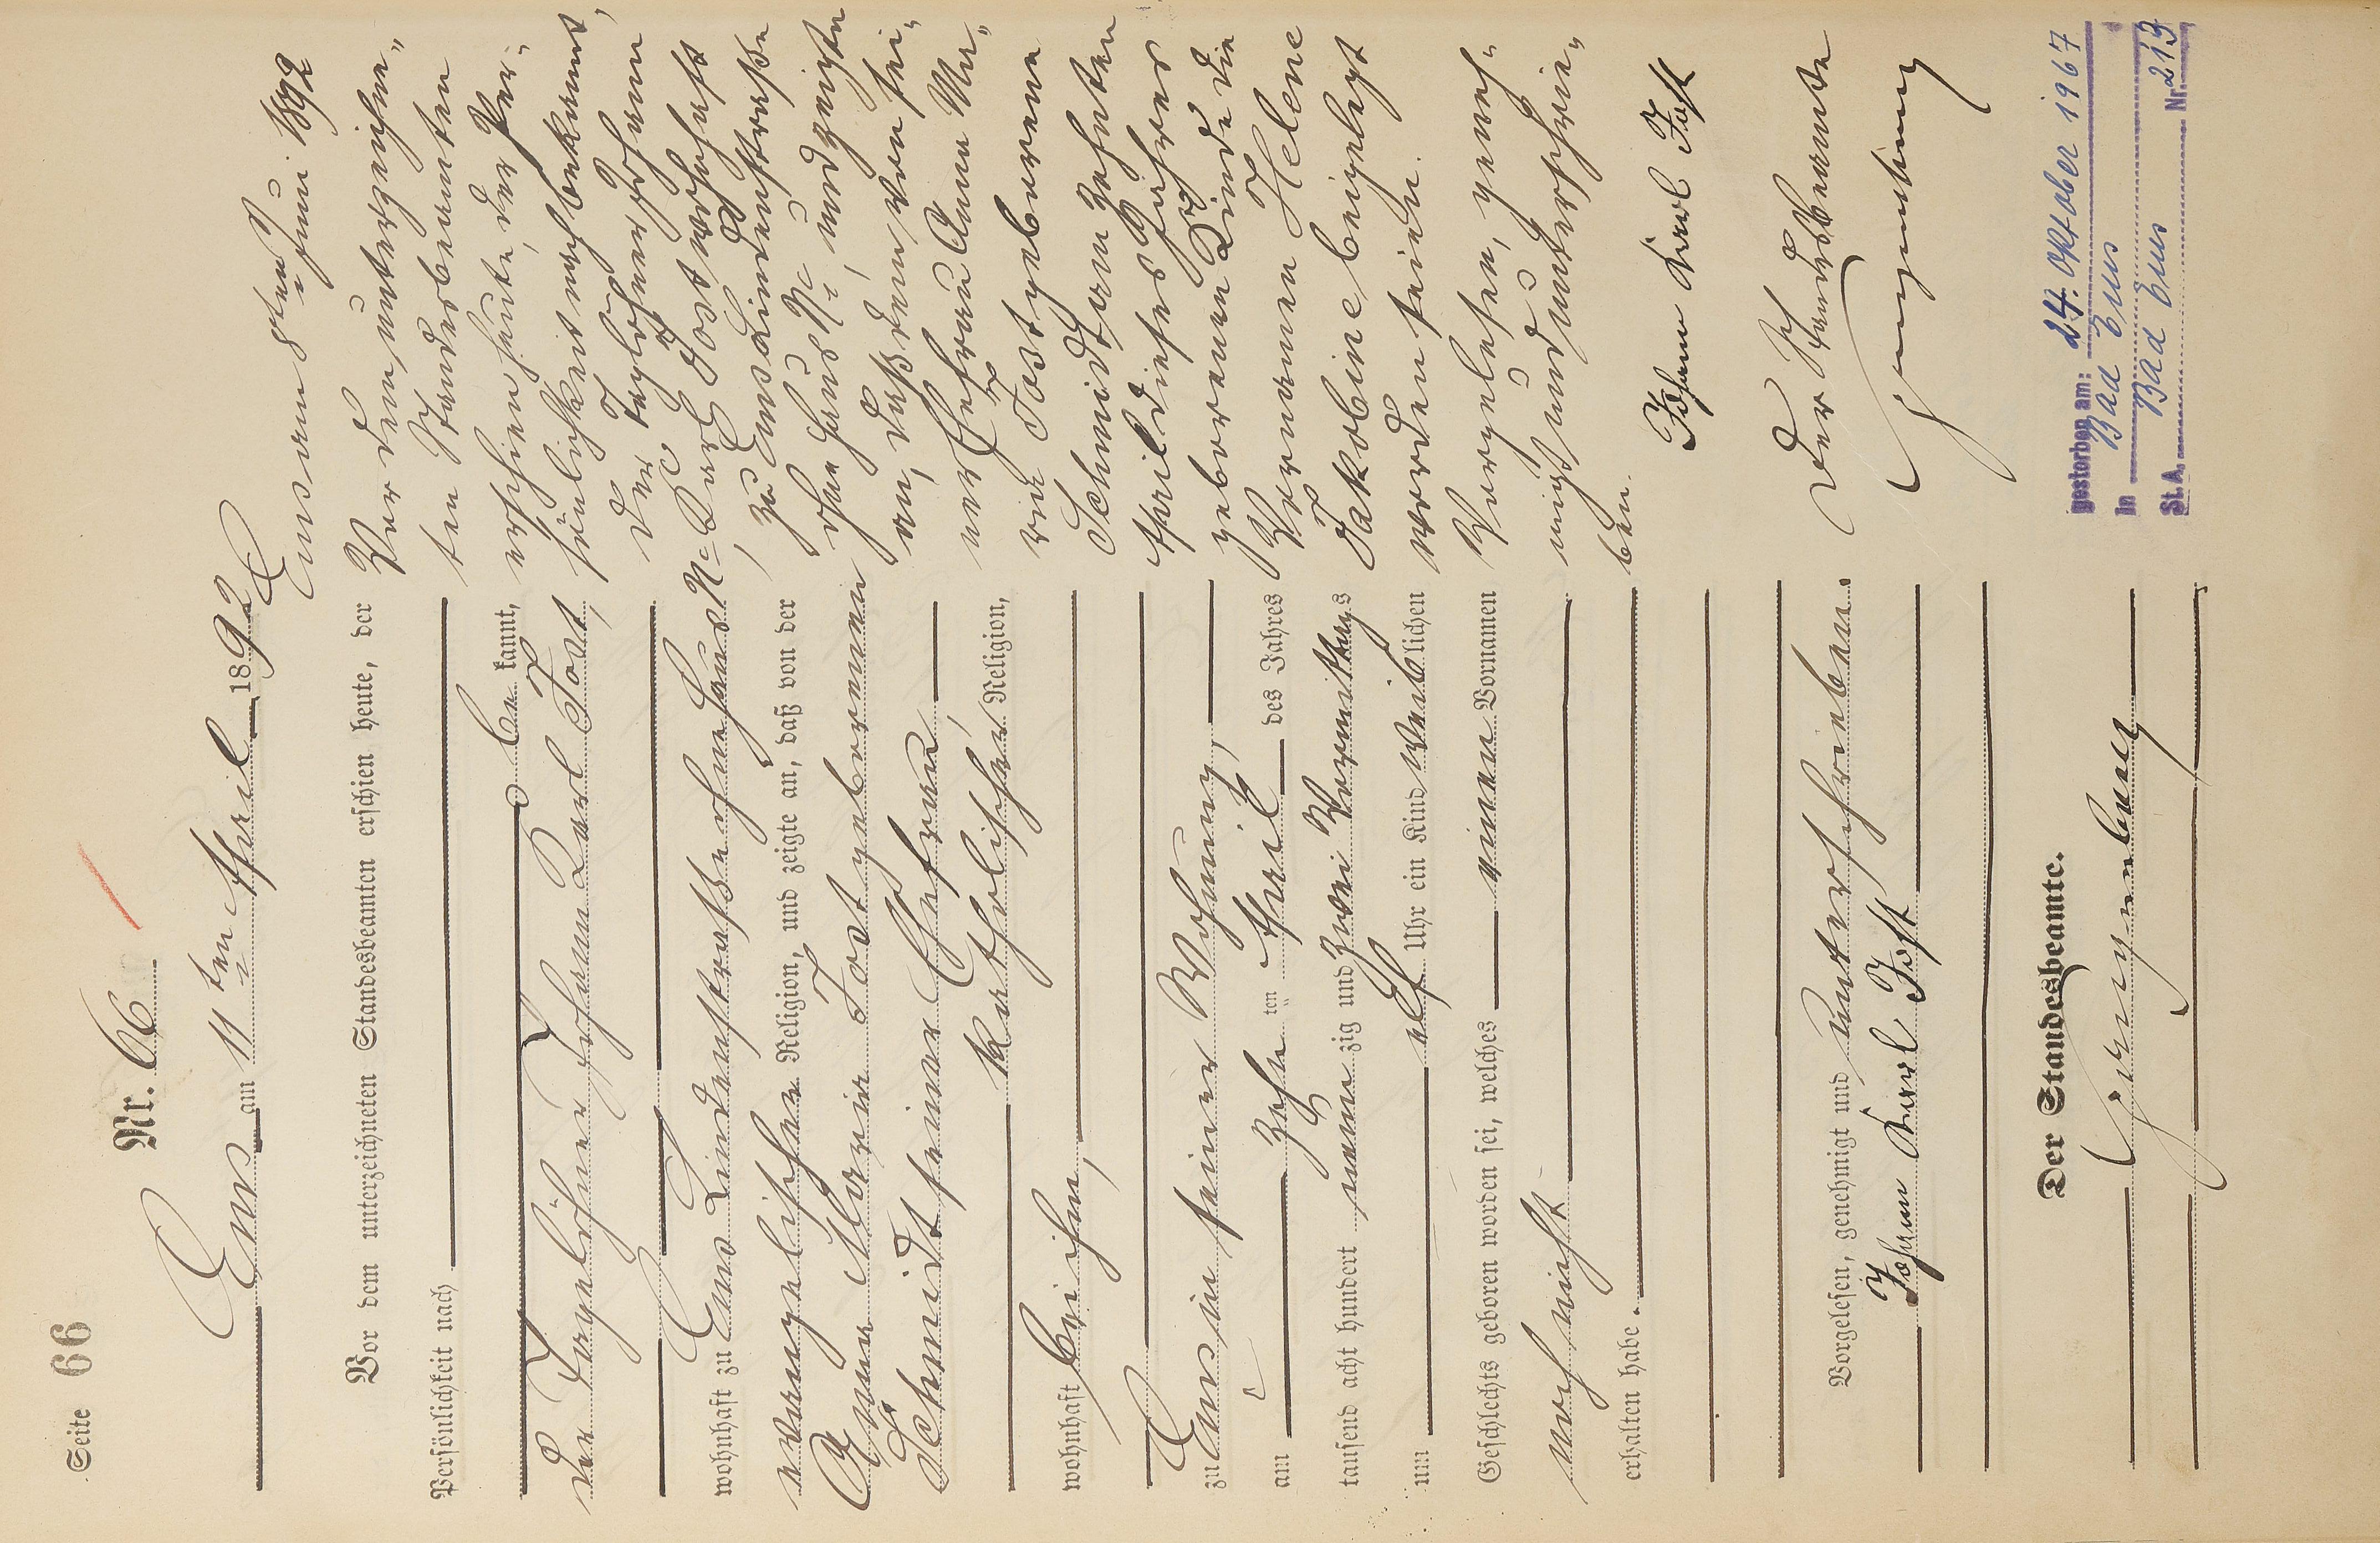 Seite 66
Nr. 66
Ems am 11ten April 1892
Vor dem unterzeichneten Standesbeamten erschien heute, der
Persönlichkeit nach
be kannt,
der Tagelöhner Johann Karl Jost,
wohnhaft zu Ems Lindenstrasse ohne Haus Nr
evangelischer Religion, und zeigte an, daß von der
Anna Maria Jost geborenen
Schmidt seiner Ehefrau
katholischer Religion,
wohnhaft bei ihm,
zu Ems in seiner Wohnung,
am zehn ten April des Jahres
tausend acht hundert neun zig und zwei Vormittags
um elf Uhr ein Kind weiblichen
Geschlechts geboren worden sei, welches einen Vornamen
noch nicht
erhalten habe.
Vorgelesen, genehmigt und unterschrieben.
Johann Karl Jost
Der Standesbeamte.
Ems am 8ten Juni 1892
Vor dem unterzeichne-
ten Standesbeamten
erschien heute, der Per-
sönlichkeit nach bekannt,
der Tagelöhner Johann
Karl Jost wohnhaft
zu Ems Lindenstrasse
ohne Haus Nr, und zeigte
an, daß dem von sei-
ner Ehefrau Anna Ma-
ria Jost geborenen
Schmidt am zehnten
April dieses Jahres
geborenen Kinde die
Vornamen Helene
Jakobine beigelegt
worden seien.
Vorgelesen, geneh-
migt und unterschrie-
ben.
Johann Karl Jost
Der Standesbeamte
gestorben am: 24. Oktober 1967
in Bad Ems
St.A. Bad Ems Nr. 213